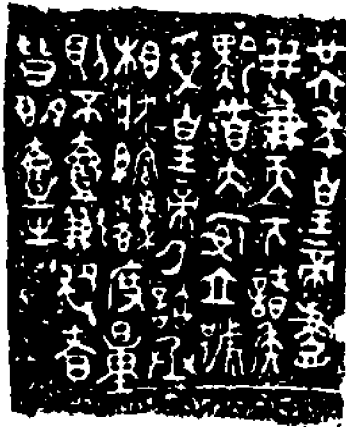 廿六年皇帝盡
并兼天下諸侯
黔首大安立號
爲皇帝乃詔丞
相狀綰灋度量
則不壹歉疑者
皆明壹之